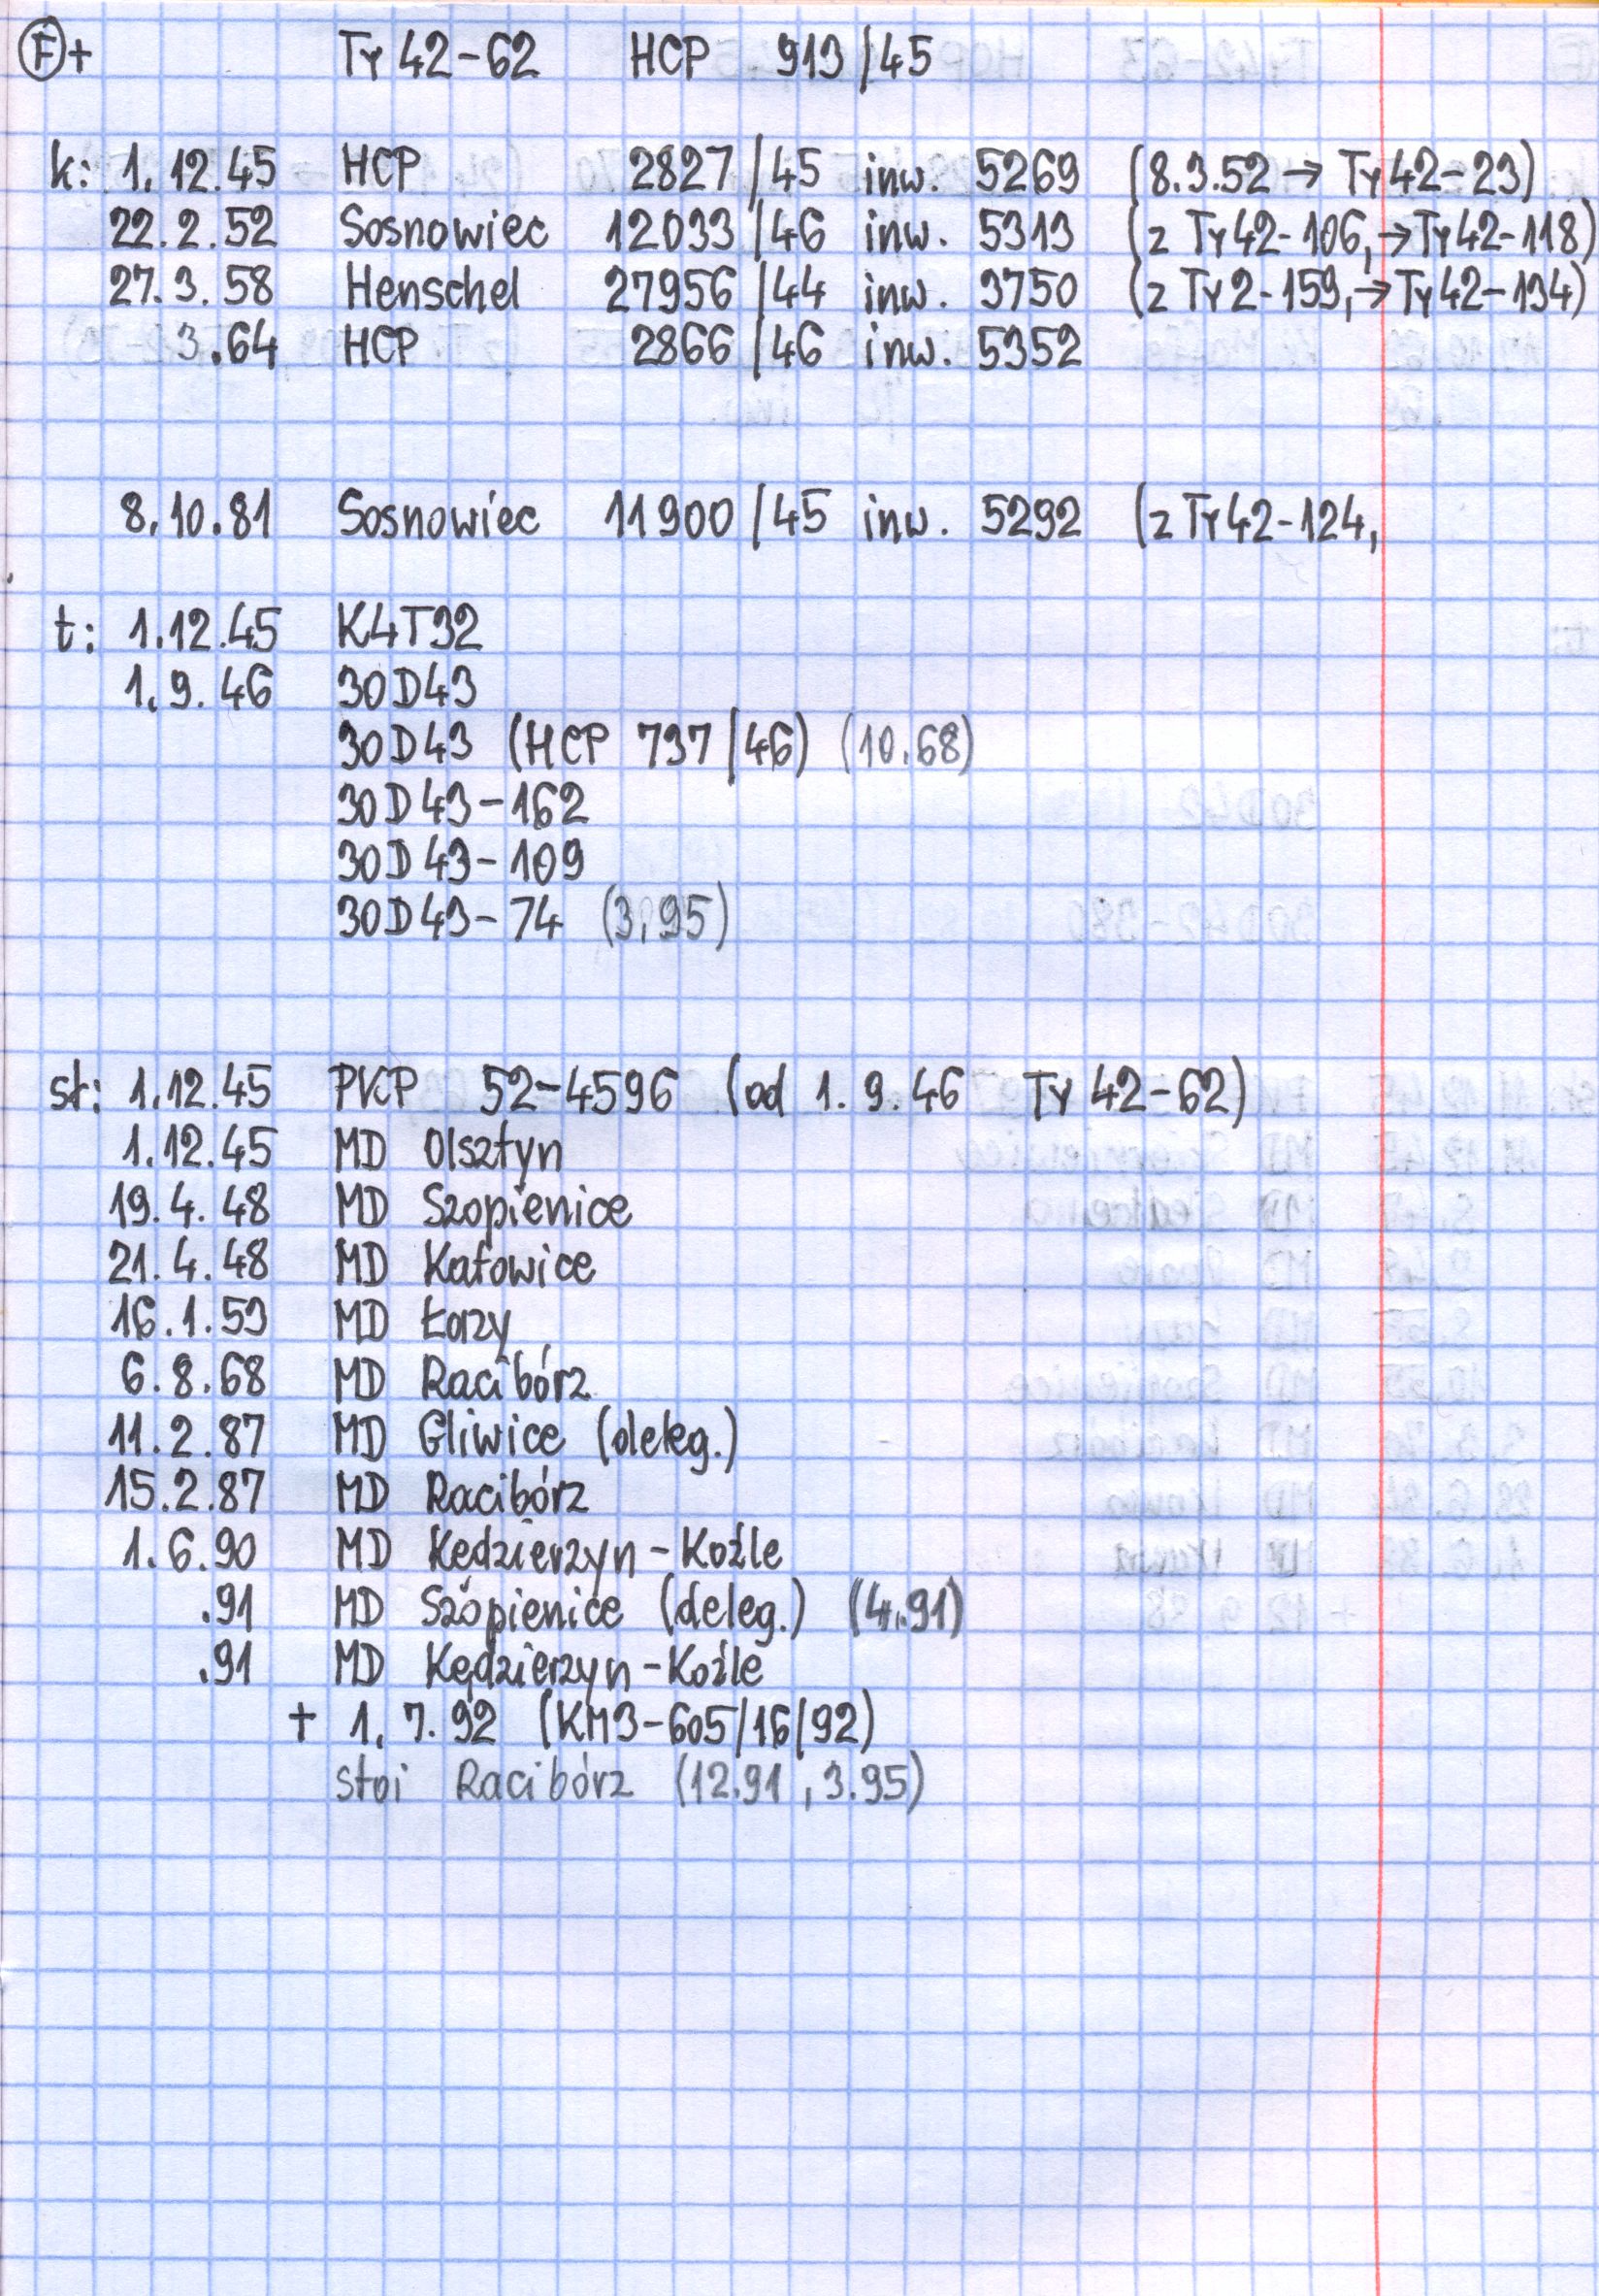 Ⓕ+ Ty 42-62 HCP 913/45
k: 1.12.45 HCP 2827/45 inw. 5269 (8.3.52 → Ty 42-23)
22.2.52 Sosnowiec 12033/46 inw. 5313 (z Ty42-106, → Ty42-118)
27.3.58 Henschel 27956/44 inw. 3750 (z Ty2-159, → Ty42-134)
3.64 HCP 2866/46 inw. 5352
8.10.81 Sosnowiec 11900/45 inw. 5292 (z Ty42-124,
t: 1.12.45 K4T32
1.9.46 30D43
30D43 (HCP 737/46) (10.68)
30D43-162
30D43-109
30D43-74 (3.95)
st: 1.12.45 PKP 52-4596 (od 1.9.46 Ty 42-62)
1.12.45 MD Olsztyn
19.4.48 MD Szopienice
21.4.48 MD Katowice
16.1.53 MD Łazy
6.8.68 MD Racibórz
11.2.87 MD Gliwice (deleg.)
15.2.87 MD Racibórz
1.6.90 MD Kędzierzyn-Koźle
.91 MD Szopienice (deleg.) (4.91)
.91 MD Kędzierzyn-Koźle
+ 1.7.92 (KM3-605/16/92)
stoi Racibórz (12.91, 3.95)